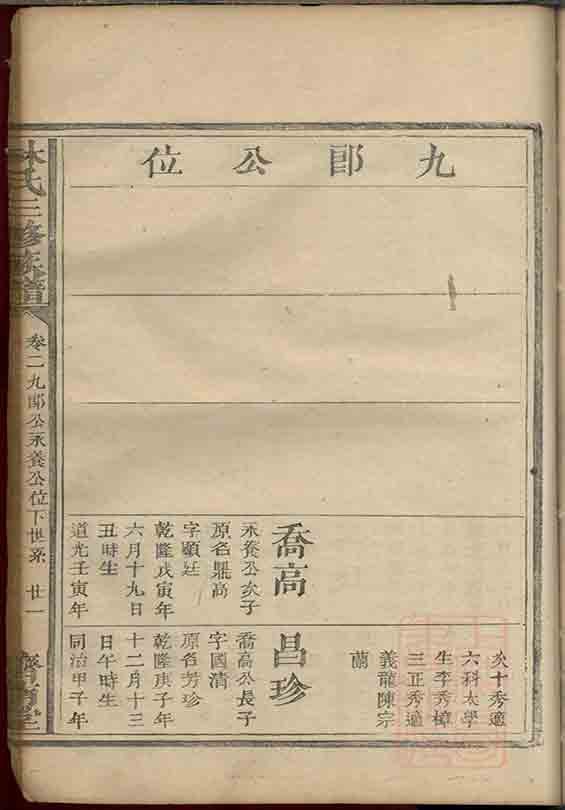 九郎公位
喬高
永養公次子
原名鼎高
字顯廷
乾隆戊寅年
六月十九日
丑時生
道光壬寅年
炎十秀適
六科太學
生李秀樟
三正秀適
義龍陳宗
蘭
昌珍
喬高公長子
字國清
原名芳珍
乾隆庚子年
十二月十三
日午時生
同治甲子年
林氏三修族譜
卷二九郎公永養公位下世系 廿一